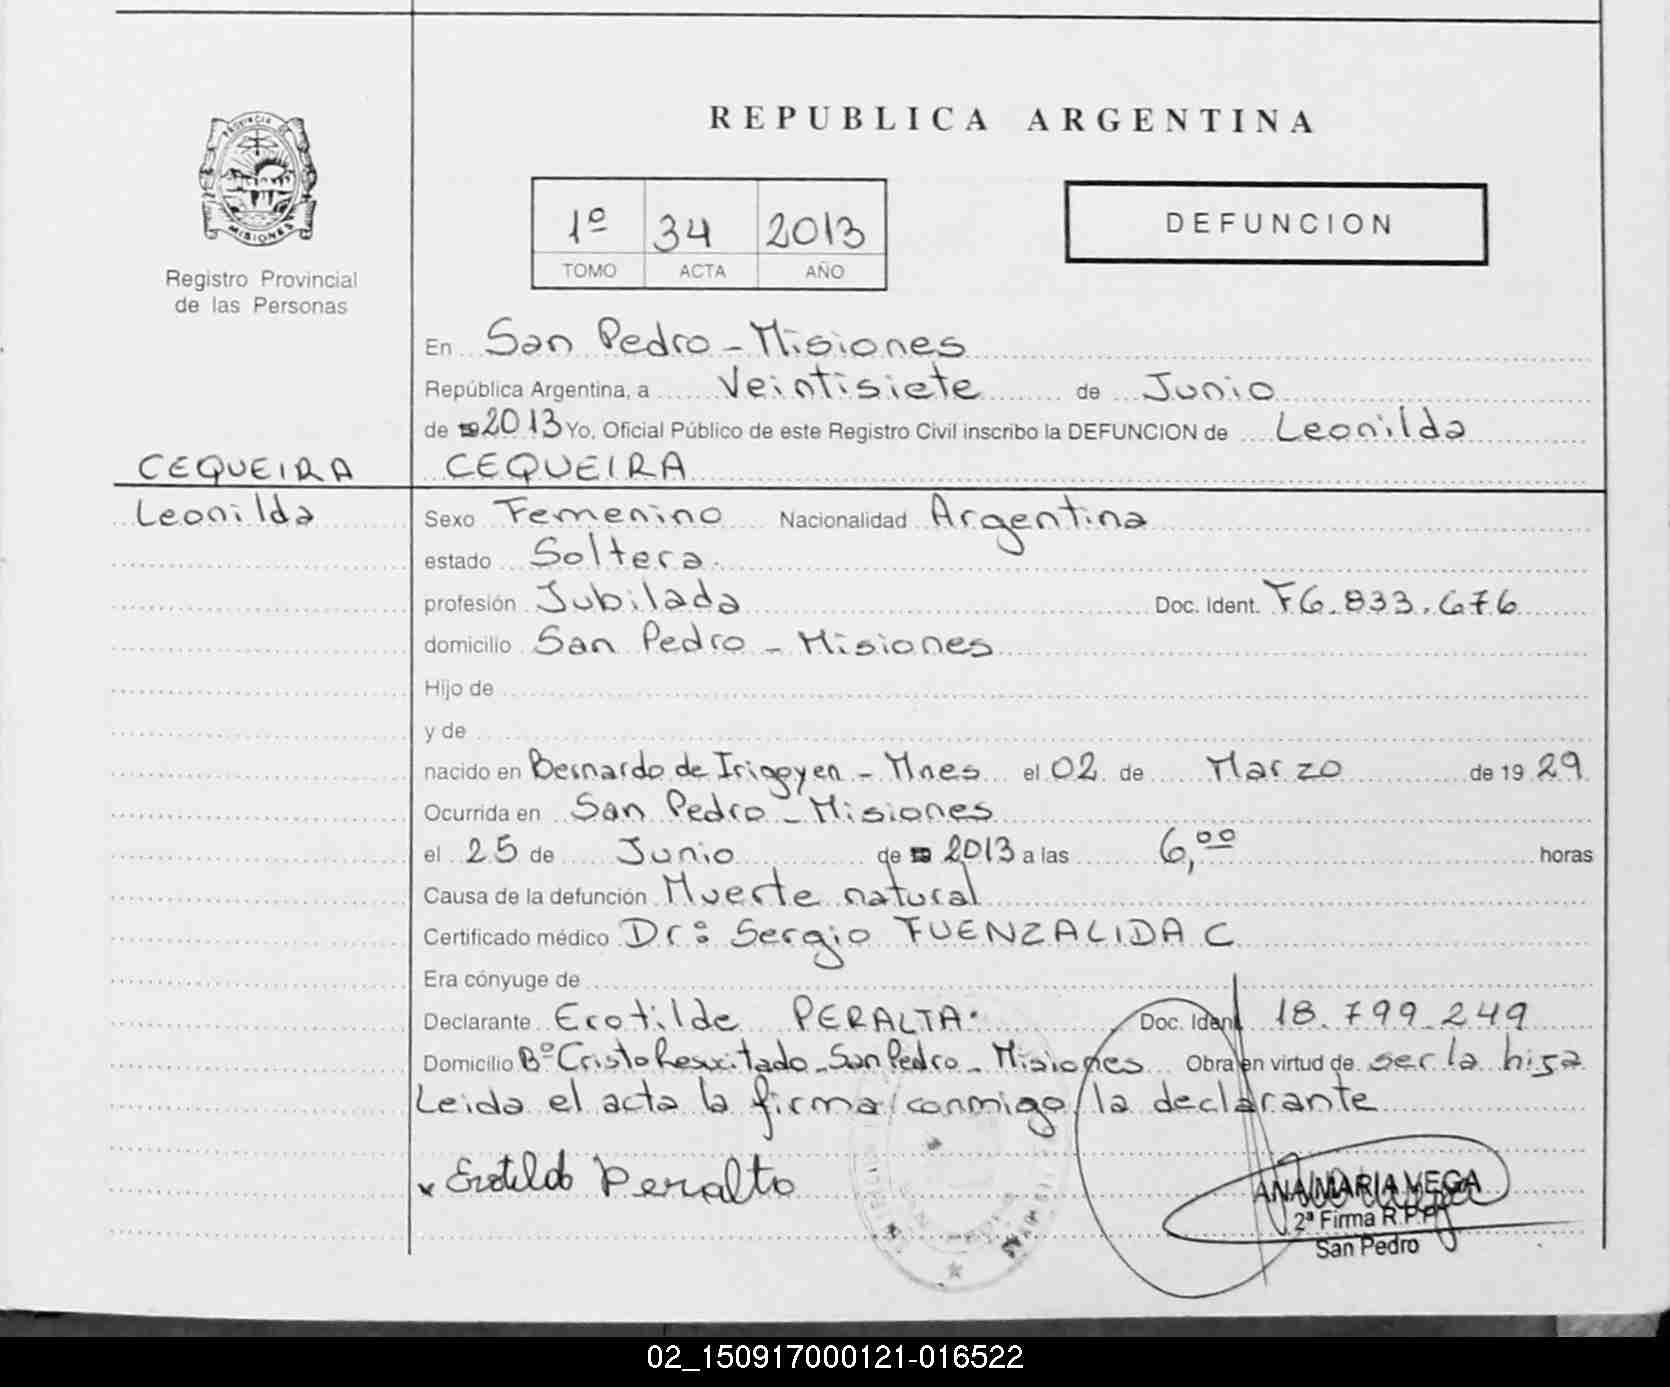 REPUBLICA ARGENTINA
PROVINCIA DE
MISIONES
Registro Provincial
de las Personas
1º 34 2013
TOMO ACTA AÑO
DEFUNCION
En San Pedro - Misiones
República Argentina, a Veintisiete de Junio
de 19 2013 Yo, Oficial Público de este Registro Civil inscribo la DEFUNCION de Leonilda
CEQUEIRA
CEQUEIRA
Leonilda
Sexo Femenino Nacionalidad Argentina
estado Soltera.
profesión Jubilada Doc. Ident. F6.833.676
domicilio San Pedro - Misiones
Hijo de
y de
nacido en Bernardo de Irigoyen - Mnes el 02 de Marzo de 19 29
Ocurrida en San Pedro - Misiones
el 25 de Junio de 19 2013 a las 6,00 horas
Causa de la defunción Muerte natural
Certificado médico Dr: Sergio FUENZALIDA C
Era cónyuge de
Declarante Erotilde PERALTA. Doc. Ident. 18.799.249
Domicilio Bº Cristo Resucitado - San Pedro - Misiones Obra en virtud de ser la hija
Leida el acta la firma conmigo la declarante
x Erotilde Peralta
ANA MARIA VEGA
2ª Firma R.P.P.
San Pedro
02_150917000121-016522